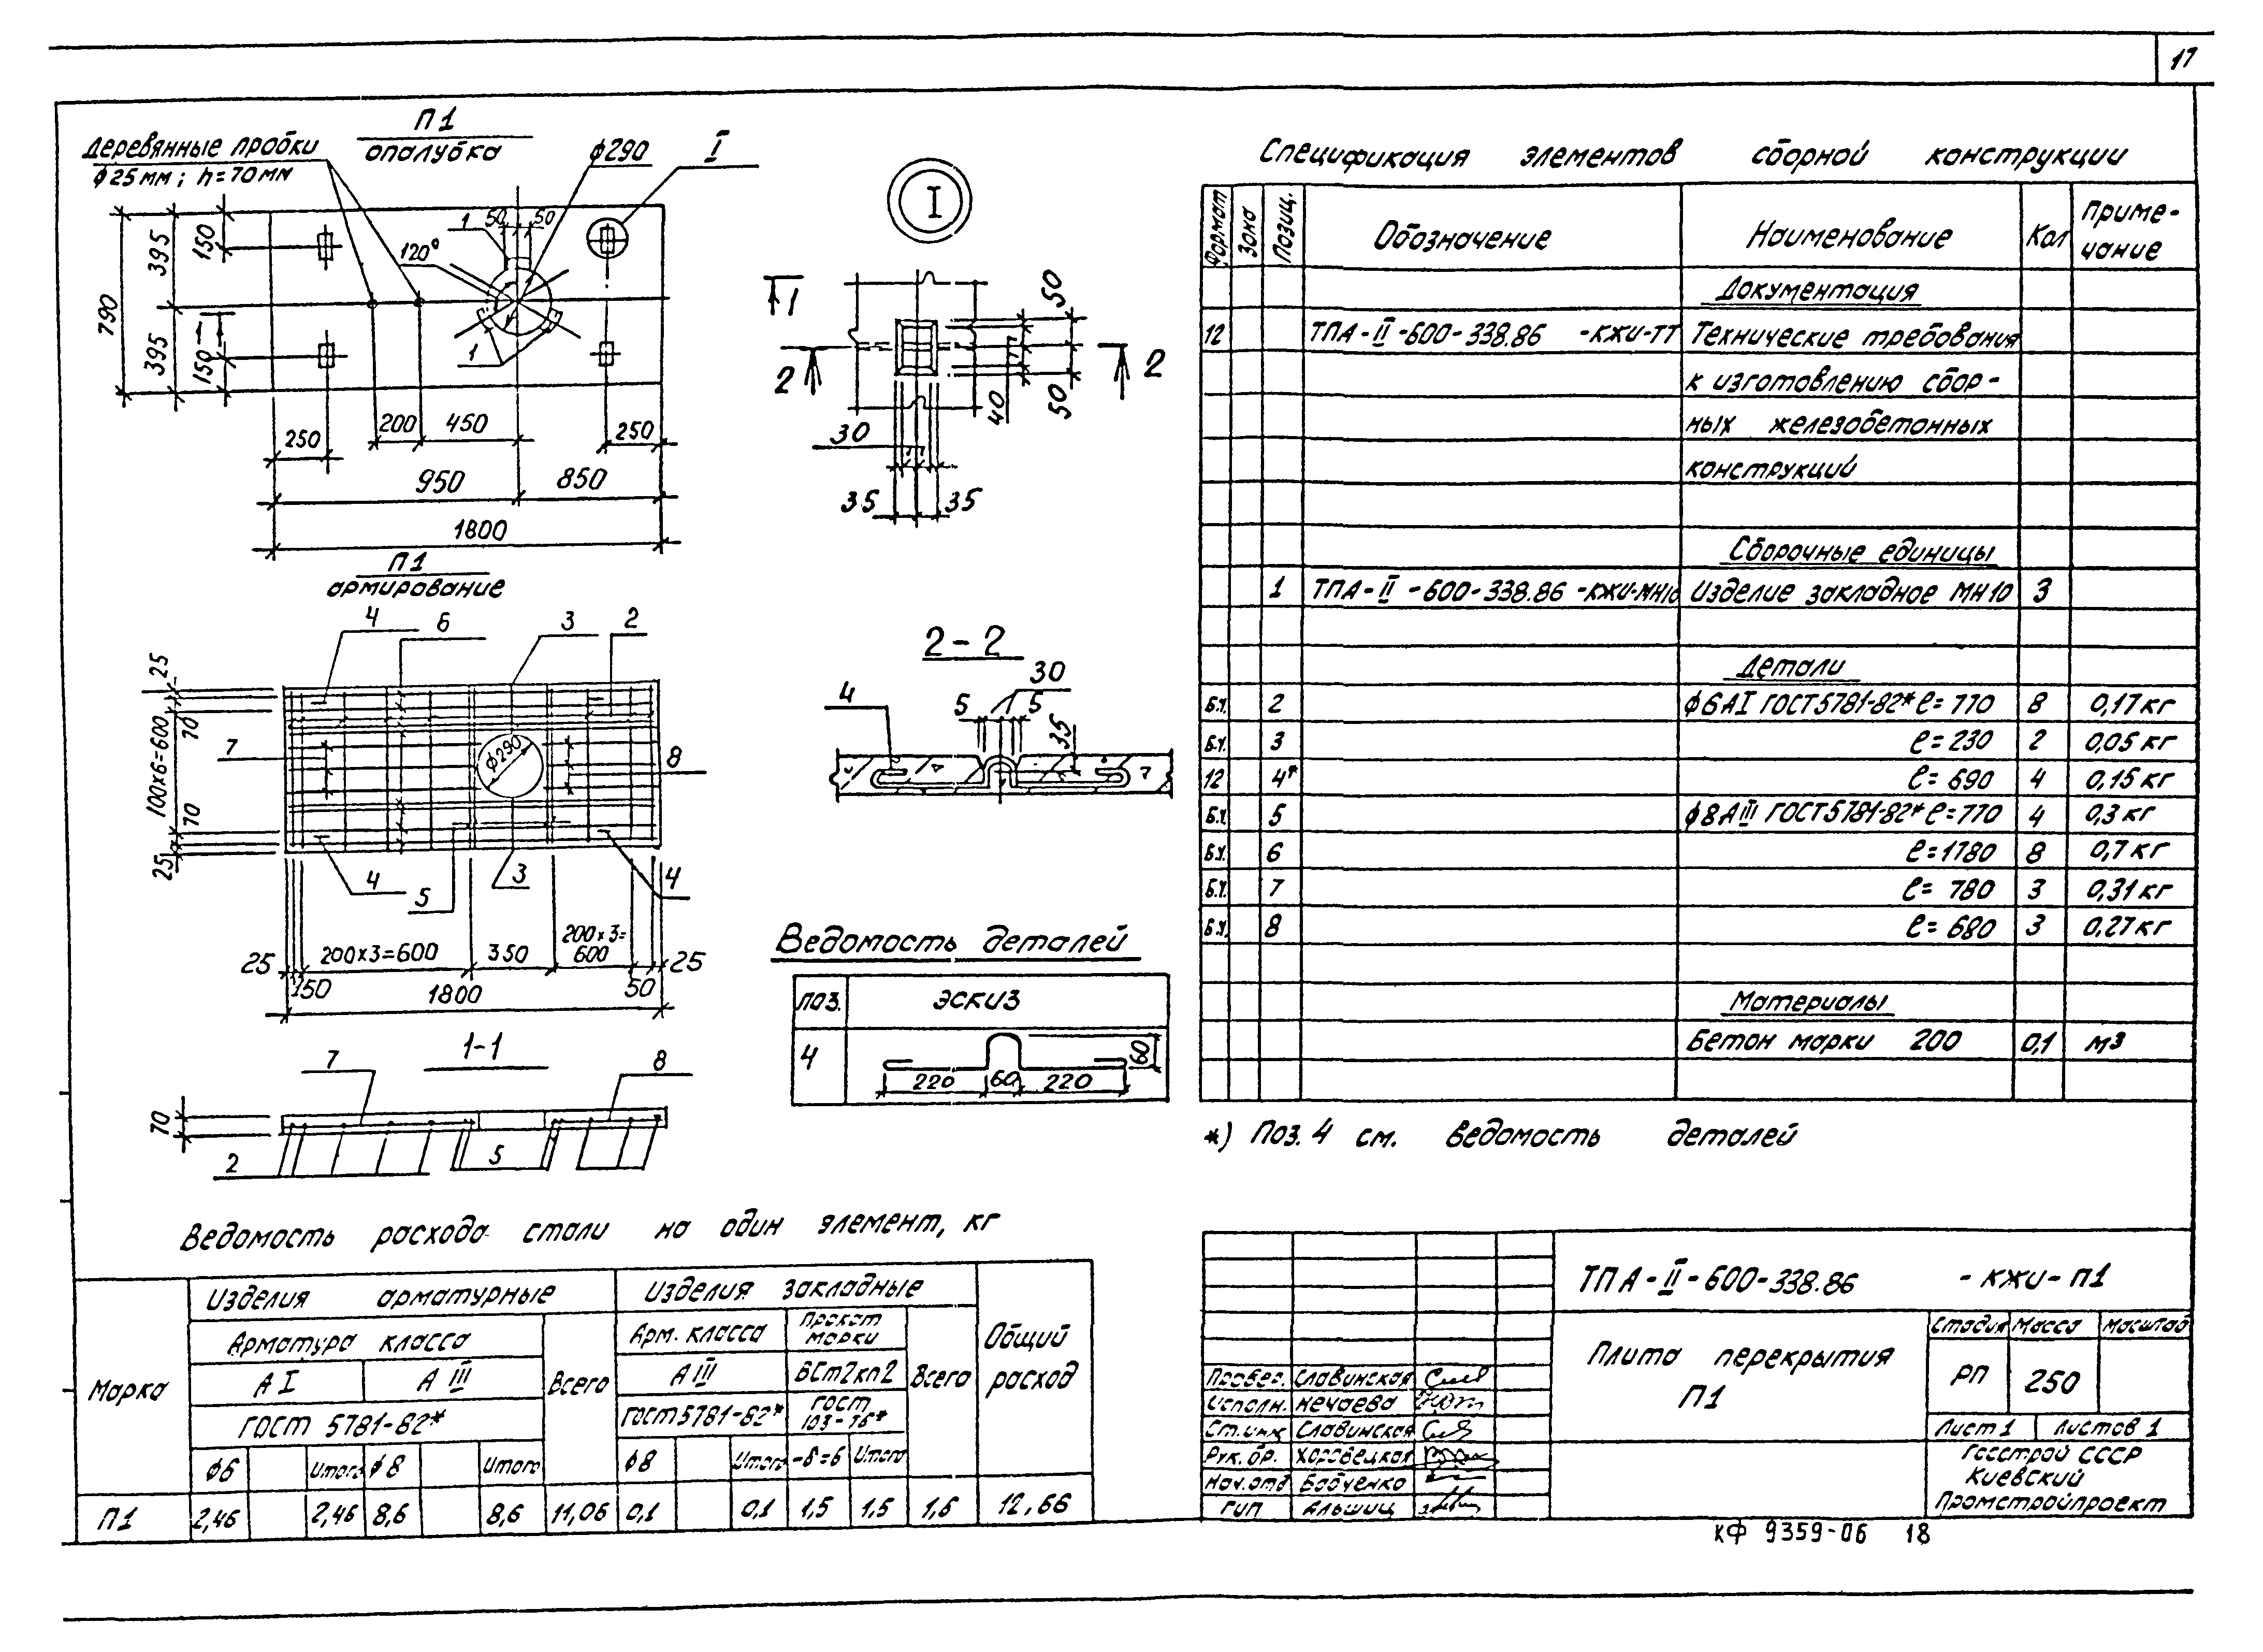 17
П1
опалубка
Деревянные пробки
ϕ25мм; h=70мм
ϕ290
I
1
50
50
120°
790
395
395
150
150
1
1
250
200
450
250
950
850
1800
I
1
2
2
50
50
40
30
35
35
П1
армирование
4
6
3
2
25
70
100×6=600
7
ϕ290
8
70
25
4
5
3
4
25
200×3=600
350
200×3=
600
25
150
1800
50
2-2
4
5
30
5
35
1-1
7
8
70
2
5
Ведомость деталей
поз.
эскиз
4
220
60
220
60
Спецификация элементов сборной конструкции
Формат
Зона
Позиц.
Обозначение
Наименование
Кол
Приме-
чание
Документация
12 ТПА-II-600-338.86 -КЖИ-ТТ Технические требования
к изготовлению сбор-
ных железобетонных
конструкций
Сборочные единицы
1 ТПА-II-600-338.86-КЖИ-МН10 Изделие закладное МН10 3
Детали
Б.ч. 2 ϕ6АI ГОСТ5781-82* ℓ=770 8 0,17кг
Б.ч. 3 ℓ=230 2 0,05кг
12 4* ℓ=690 4 0,15кг
Б.ч. 5 ϕ8АIII ГОСТ5781-82* ℓ=770 4 0,3кг
Б.ч. 6 ℓ=1780 8 0,7кг
Б.ч. 7 ℓ=780 3 0,31кг
Б.ч. 8 ℓ=680 3 0,27кг
Материалы
Бетон марки 200 0,1 м3
*) Поз. 4 см. ведомость деталей
Ведомость расхода стали на один элемент, кг
Марка
Изделия арматурные
Изделия закладные
Общий
расход
Арматура класса
Всего
Арм. класса
Прокат
марки
Всего
АI
АIII
АIII
ВСт2кп2
ГОСТ 5781-82*
ГОСТ5781-82*
ГОСТ
103-76*
ϕ6 Итого ϕ8 Итого ϕ8 Итого -δ=6 Итого
П1 2,46 2,46 8,6 8,6 11,06 0,1 0,1 1,5 1,5 1,6 12,66
ТПА-II-600-338.86 -КЖИ-П1
Плита перекрытия
П1
Стадия Масса Масштаб
РП 250
Лист 1 Листов 1
Госстрой СССР
Киевский
Промстройпроект
Провер. Славинская
Исполн. Нечаева
Ст.инж Славинская
Рук.бр.
Нач.отд Бабченко
ГИП Альшиц
КФ 9359-06 18